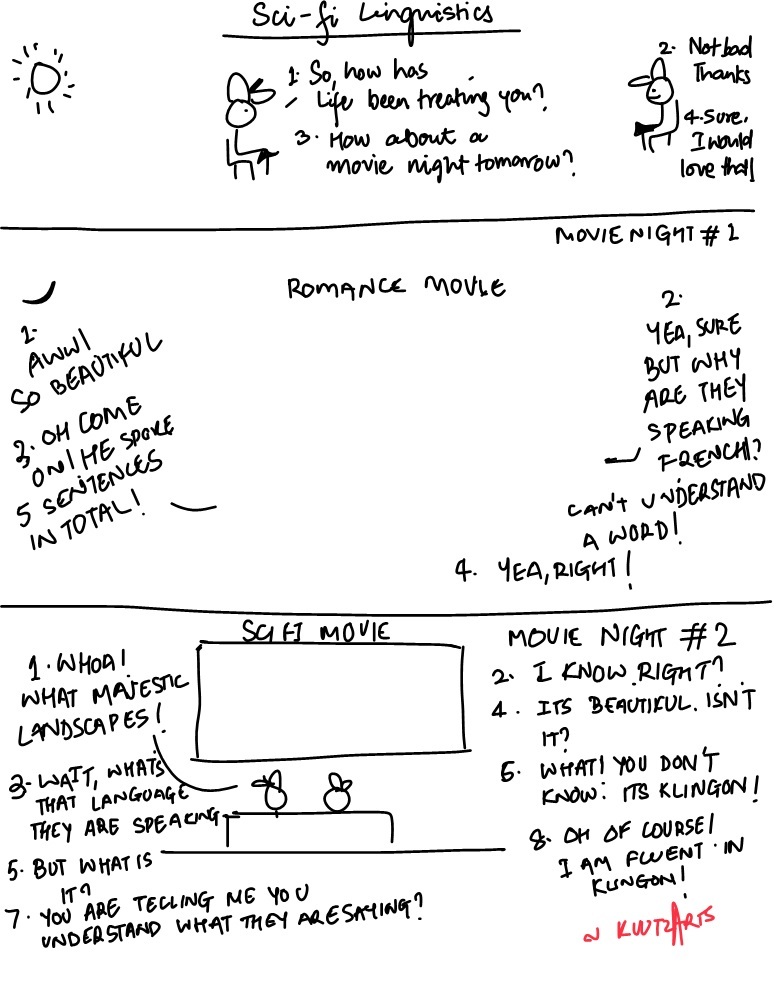 Sci-fi Linguistics
1. So, how has
Life been treating you?
2. Not bad
Thanks
3. How about a
movie night tomorow?
4. Sure.
I would
love that
MOVIE NIGHT # 1
ROMANCE MOVIE
1.
AWW!
SO BEAUTIFUL
2.
YEA, SURE
BUT WHY
ARE THEY
SPEAKING
FRENCH?
CAN'T UNDERSTAND
A WORD!
3. OH COME
ON! HE SPOKE
5 SENTENCES
IN TOTAL!
4. YEA, RIGHT!
SCI FI MOVIE
MOVIE NIGHT #2
1. WHOA!
WHAT MAJESTIC
LANDSCAPES!
2. I KNOW RIGHT?
3. WAIT, WHATS
THAT LANGUAGE
THEY ARE SPEAKING
4. ITS BEAUTIFUL. ISN'T
IT?
5. BUT WHAT IS
IT?
6. WHAT! YOU DON'T
KNOW. ITS KLINGON!
7. YOU ARE TELLING ME YOU
UNDERSTAND WHAT THEY ARE SAYING?
8. OH OF COURSE!
I AM FLUENT IN
KLINGON!